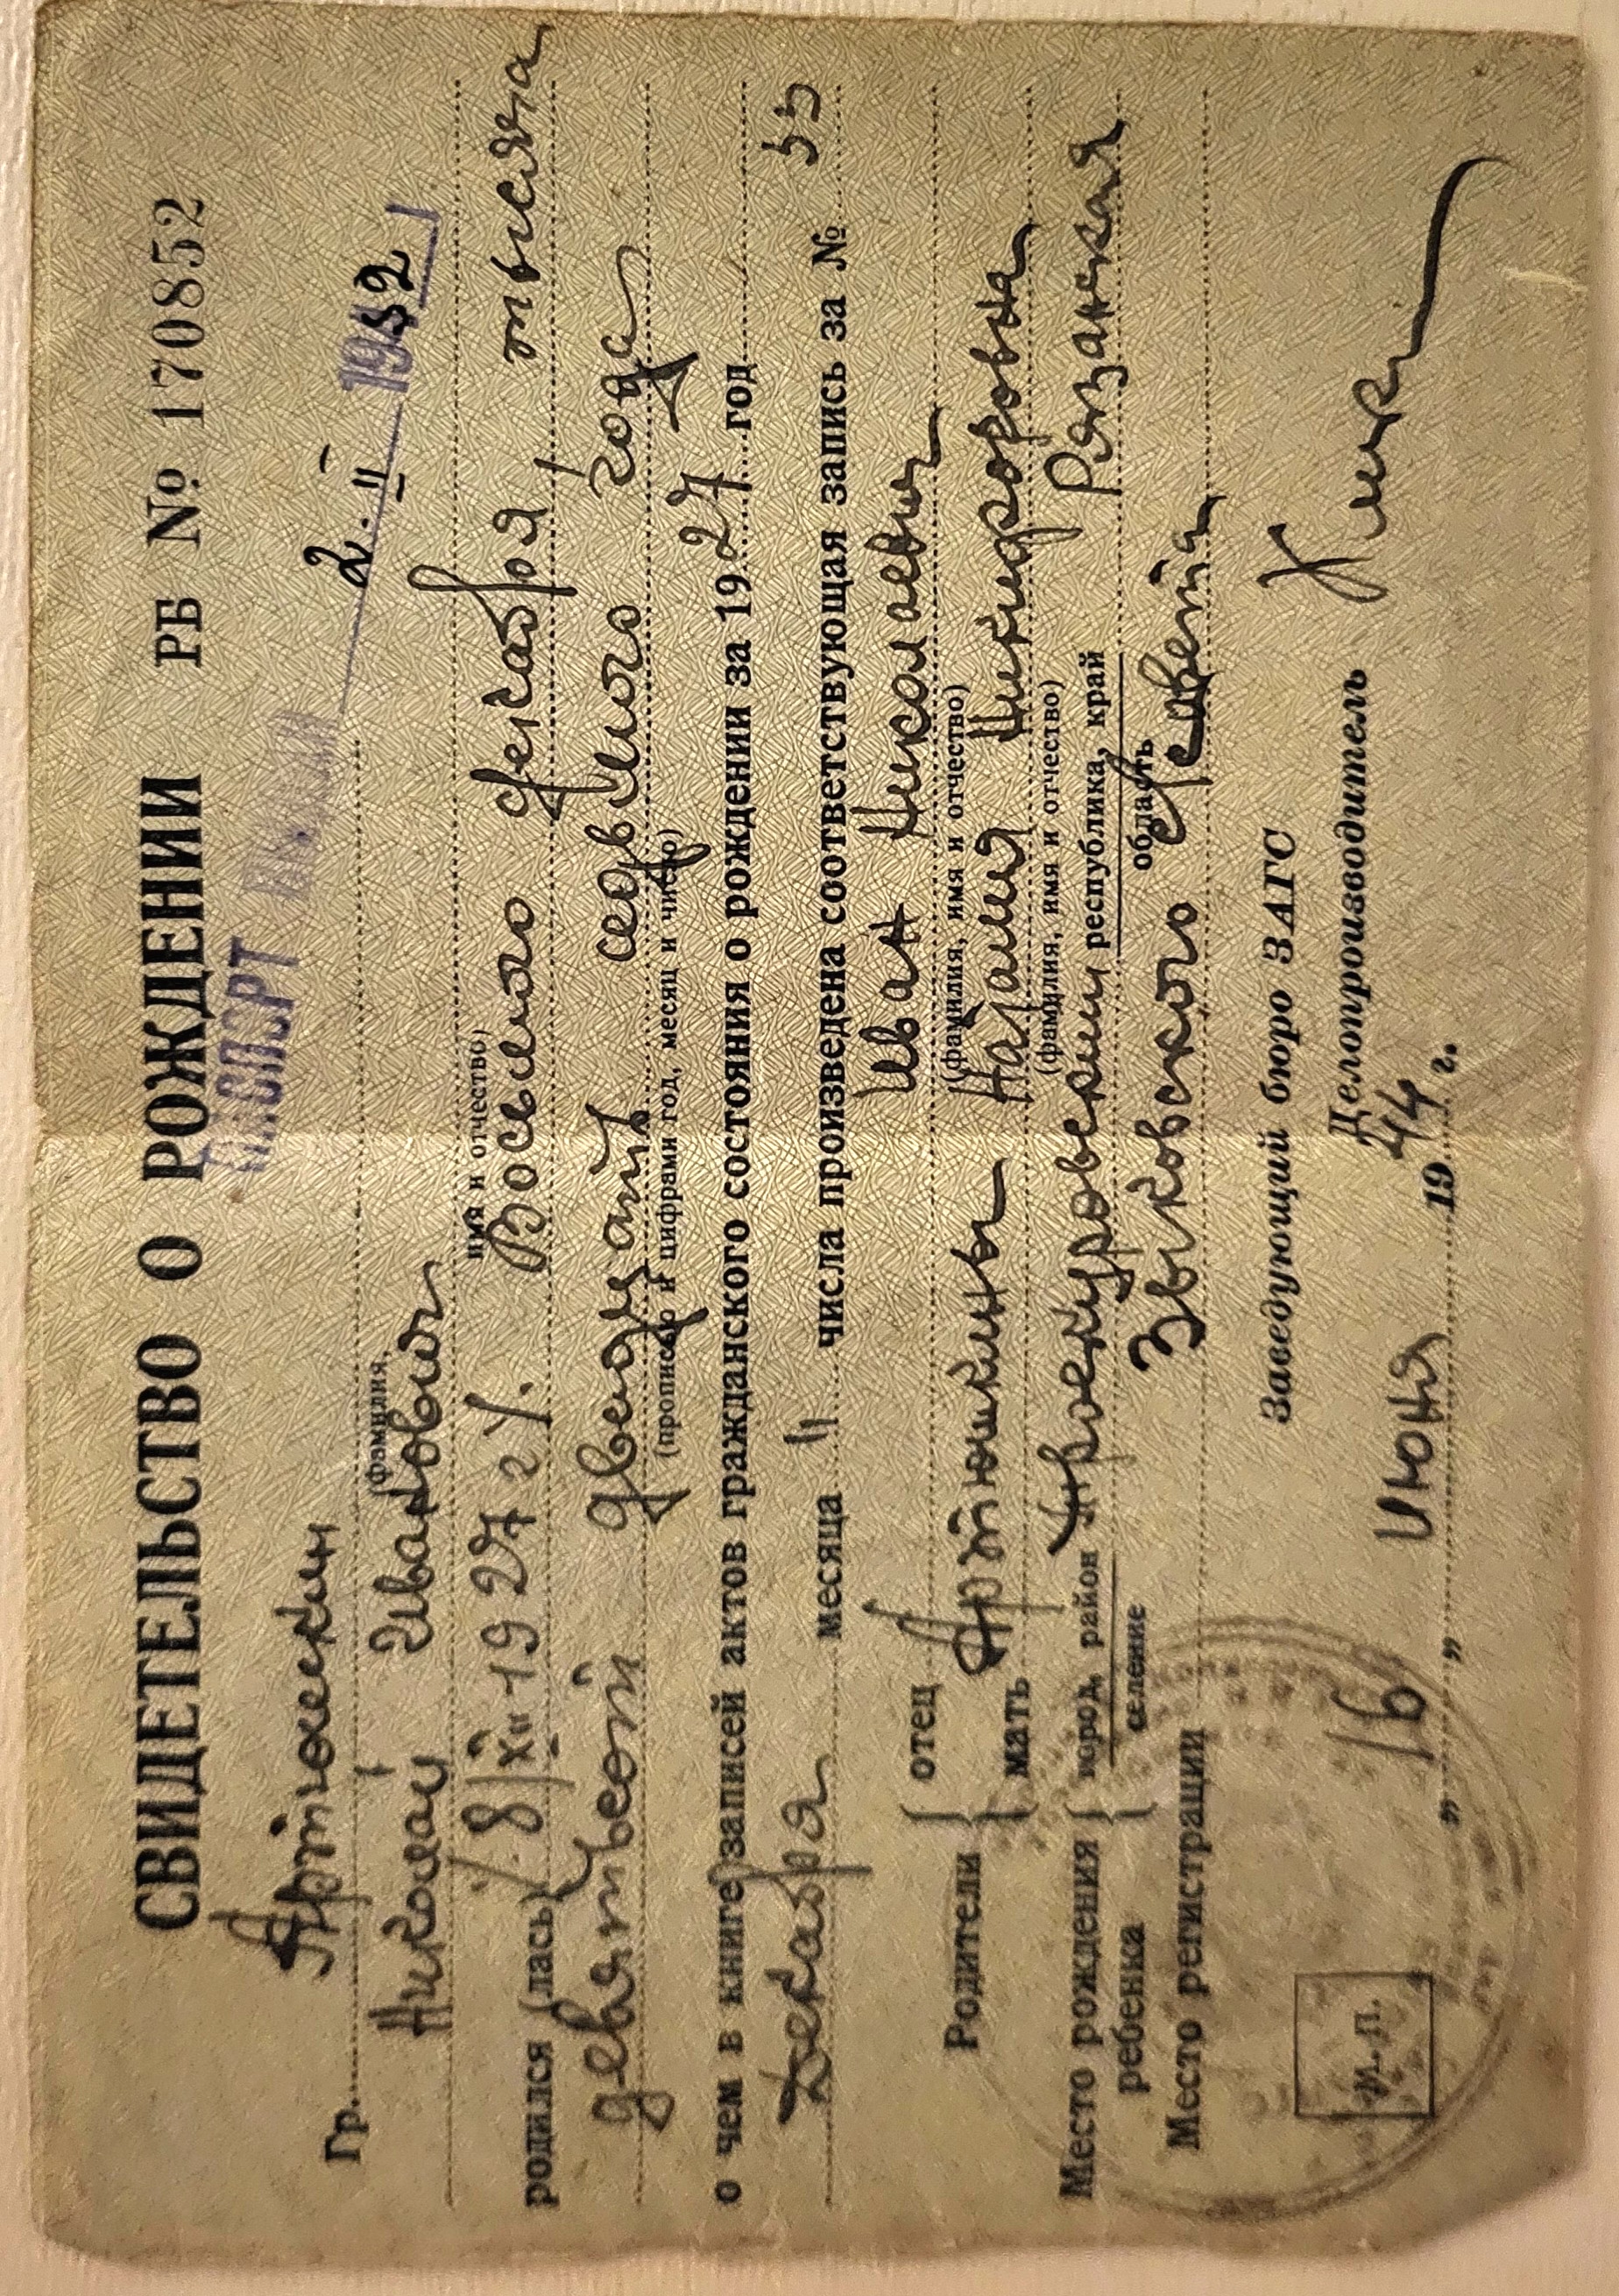 СВИДЕТЕЛЬСТВО О РОЖДЕНИИ РБ № 170852
ПАСПОРТ ВЫДАН
2. II 1952
Гр. Артюшкин
(фамилия,
Николай Иванович
имя и отчество)
родился (лась) 8/XII 1927 г. Восьмого декабря тысяча
девятьсот двадцать седьмого года
(прописью и цифрами год, месяц и число)
о чем в книге записей актов гражданского состояния о рождении за 1927 год
Декабря месяца 11 числа произведена соответствующая запись за № 33
Родители { отец Иван Николаевич
(фамилия, имя и отчество)
Артюшкины
мать Наталия Никифоровна
(фамилия, имя и отчество)
Место рождения ребенка { город, район республика, край Рязанская
селение область
Место регистрации Зыковского с/совета
Заведующий бюро ЗАГС
Делопроизводитель
М. П.
„16" июня 1944 г.